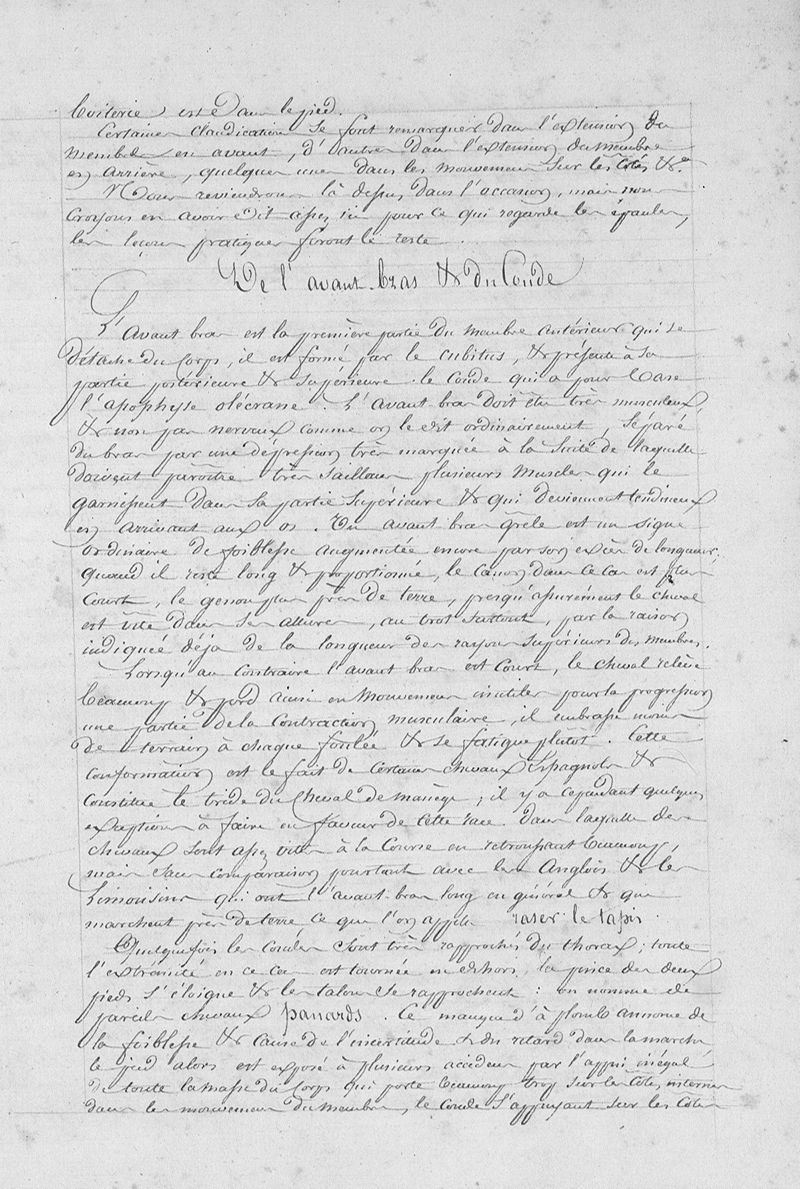 boiterie est dans le pied.
Certaines claudications se font remarquer dans l'extension du
membre en avant, d'autres dans l'extension du membre
en arrière, quelques unes dans les mouvemens sur les côtés &a.
Nous reviendrons là dessus dans l'occasion, mais nous
croyons en avoir dit assez ici pour ce qui regarde les épaules,
les leçons pratiques feront le reste.
De l'avant-bras & du Coude
L'avant bras est la première partie du membre antérieur qui se
détache du corps, il est formé par le cubitus, & présente à sa
partie postérieure & supérieure le Coude qui a pour base
l'apophyse olécrane. L'avant bras doit être très musculeux,
& non pas nerveux comme on le dit ordinairement, séparé
du bras par une dépression très marquée à la suite de laquelle
doivent paroitre très saillans plusieurs muscles qui le
garnissent dans sa partie supérieure & qui deviennent tendineux
en arrivant aux os. Un avant bras grêle est un signe
ordinaire de foiblesse augmentée encore par son excès de longueur.
Quand il reste long & proportionné, le canon dans ce cas est plus
court, le genou plus près de terre, presqu'assurement le cheval
est vite dans ses allures, au trot surtout, par la raison
indiquée déja de la longueur des rayons supérieurs des membres.
Lorsqu'au contraire l'avant bras est court, le cheval relève
beaucoup & perd ainsi en mouvemens inutiles pour la progression
une partie de la contraction musculaire, il embrasse moins
de terrain à chaque foulée & se fatigue plutôt. Cette
conformation est le fait de certains chevaux Espagnols &
constitue le tride du cheval de manège; il y a cependant quelques
exceptions à faire en faveur de cette race dans laquelle des
chevaux sont assez vites à la course en retroussant beaucoup,
mais sans comparaison pourtant avec les Anglois & les
Limousins qui ont l'avant-bras long en général & qui
marchent près de terre ce que l'on appelle raser le tapis.
Quelquefois les coudes sont très rapprochés du thorax; toute
l'extrémité en ce cas est tournée en dehors, la pince des deux
pieds s'éloigne & les talons se rapprochent: on nomme de
pareils chevaux panards. Ce manque d'à plomb annonce de
la foiblesse & cause de l'incertitude & du retard dans la marche
le pied alors est exposé à plusieurs accidens par l'appui inégal
de toute la masse du corps qui porte beaucoup trop sur les côtés internes
dans les mouvemens du membre, le coude s'appuyant sur les côtes